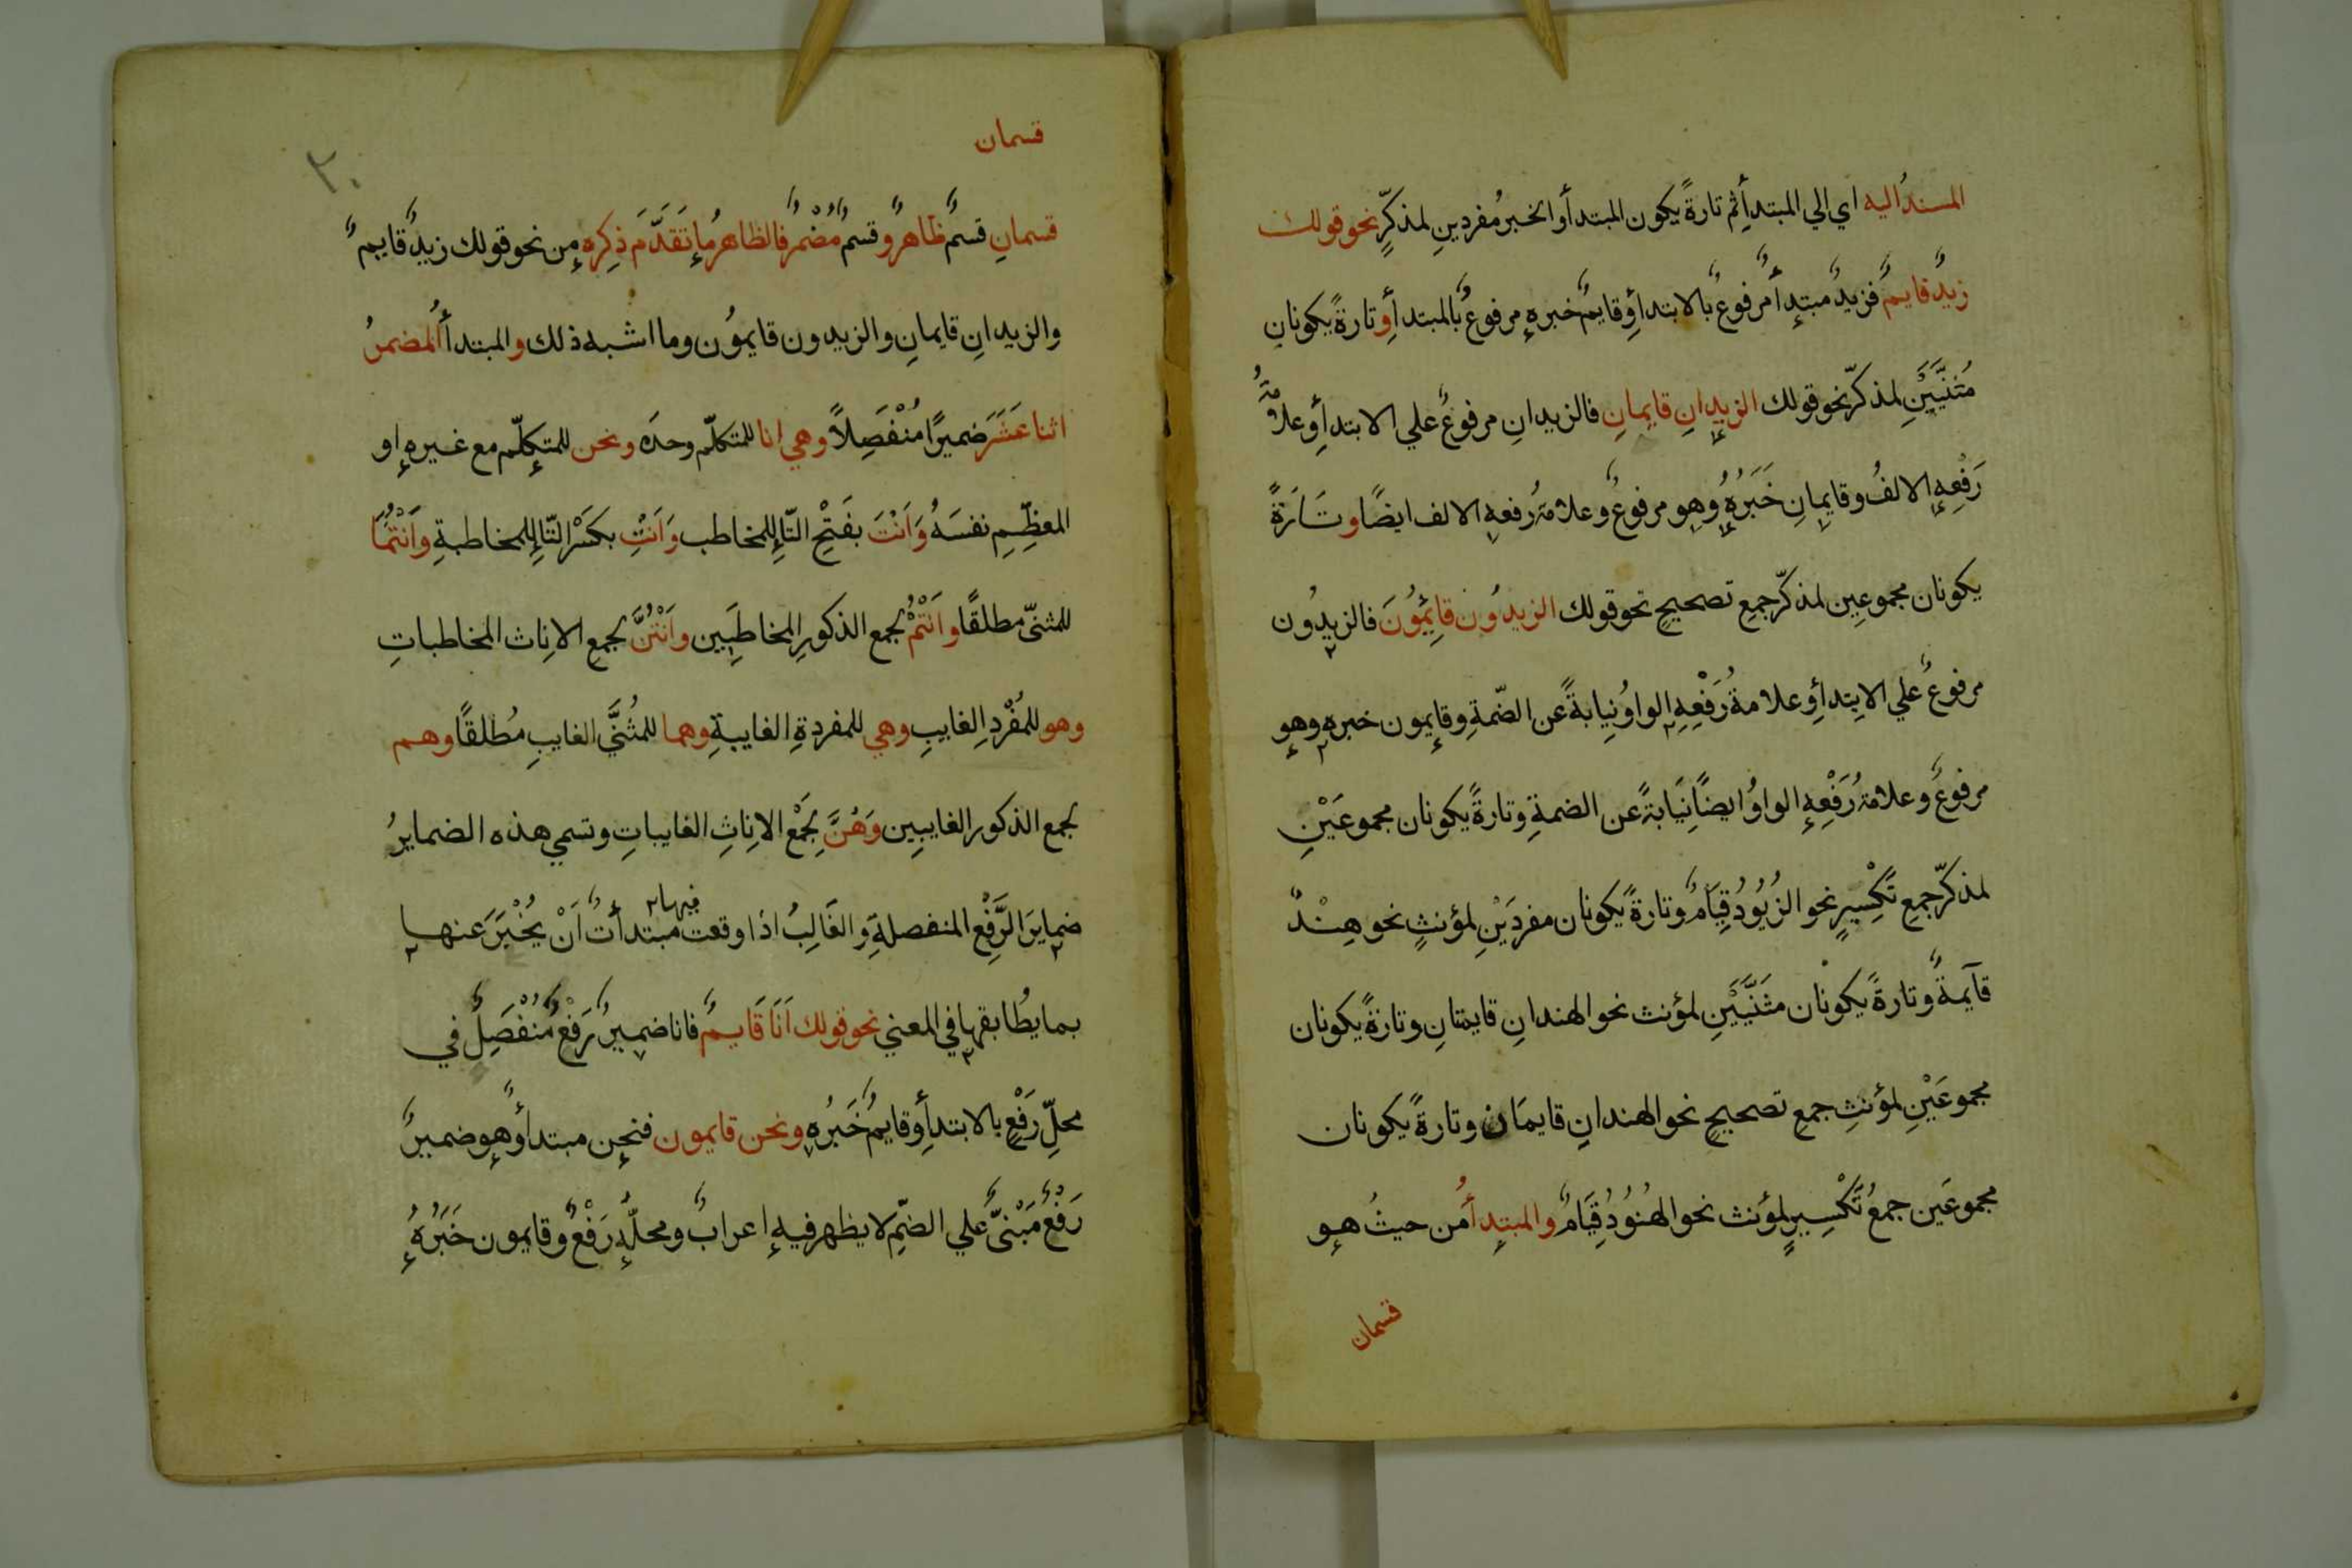 المسندُ اليه اي الي المبتدأِ ثم تارةً يكون المبتدأ والخبرُ مُفردينِ لمذكّرٍ نحو قولك
زيدٌ قايمٌ فزيدٌ مبتدأٌ مرفوعٌ بالابتدأِ وقايمٌ خبره مرفوعٌ بالمبتدأِ وتارةً يكونانِ
مُثنَّيَينِ لمذكّر نحو قولك الزيدانِ قايمانِ فالزيدانِ مرفوعٌ علي الابتدأِ وعلامةُ
رَفْعِهِ الالفُ وقايمانِ خَبَرُهُ وهو مرفوعٌ وعلامةُ رفعهِ الالف ايضًا وتَارَةً
يكونان مجموعين لمذكّر جمعِ تصحيحٍ نحو قولك الزيدُون قائِمُونَ فالزيدُون
مرفوعٌ علي الابتدأِ وعلامةُ رَفْعِهِ الواوُ نِيابةً عن الضّمةِ وقايمون خبره وهو
مرفوعٌ وعلامةُ رَفْعِهِ الواوُ ايضًا نِيَابةً عن الضمةِ وتارةً يكونان مجموعَيْنِ
لمذكّر جمع تَكْسِيرٍ نحو الزُيُودُ قِيَامٌ وتارةً يكونان مفردَيْنِ لمؤنثٍ نحو هِنْدٌ
قآيمةٌ وتارةً يكونان مثَنَّيَيْنِ لمؤنث نحو الهندانِ قايمتانِ وتارةً يكونان
مجموعَيْنِ لمؤنثِ جمعِ تصحيحٍ نحو الهندانِ قايمَان وتارةً يكونان
مجموعَين جمعُ تَكْسِيرٍ لمؤنث نحو الهنُوُدُ قِيَامٌ والمبتدأُ من حيثُ هو
قسمان
قسمان
٢٠
قسمانِ قسمٌ ظاهرٌ وقسمٌ مُضْمرٌ فالظاهرُ ما تَقَدَّمَ ذِكره من نحو قولك زيدٌ قايمٌ
والزيدانِ قايمانِ والزيدون قايموُن وما اشبه ذلك والمبتدأُ المضمرُ
اثنا عَشَرَ ضميرًا مُنْفَصِلاً وهي انا للمتكلّم وحدَه ونحن للمتكلّم مع غيره او
المعظِّمِ نفسَهُ وَاَنْتَ بفَتْحِ التّاِ للمخاطب وَاَنْتِ بكَسْرِ التّاِ للمخاطبةِ وَاَنْتُمَا
للمثنّى مطلقًا واَنْتُمْ لجمع الذكورِ المخاطَبِين واَنْتُنَّ لجمعِ الانِاث المخاطباتِ
وهو للمُفْردِ الغايبِ وهي للمفردةِ الغايبةِ وهما للمُثنَّي الغايبِ مُطلقًا وهم
لجمع الذكور الغايبِين وَهُنَّ لِجَمْع الانِاثِ الغايباتِ وتسمي هذه الضمايرُ
ضمايرَ الرَّفْعِ المنفصلةِ والغَالِبُ اذا وقعت مبتدأتٌ فيها اَنْ يُخْبَرَ عنها
بما يطُابقها في المعني نحو قولك اَنَا قَايمٌ فانا ضميرُ رَفْعٍ مُنْفَصِلٌ في
محلِّ رَفْعٍ بالابتدأِ وقايمٌ خَبَرُه ونحن قايمون فنحن مبتدأٌ وهو ضميرُ
رَفْعٍ مَبْنىٌّ علي الضّمِ لا يظهر فيه اعرابٌ ومحلّه رَفْعٌ وقايمون خَبَرُهُ